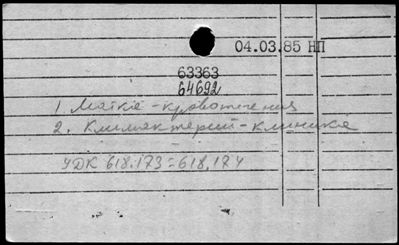 04.03.85 НП
63363
64692
1 Матка - кровотечения
2. Климактерий - клиника
УДК 618.173=618,174